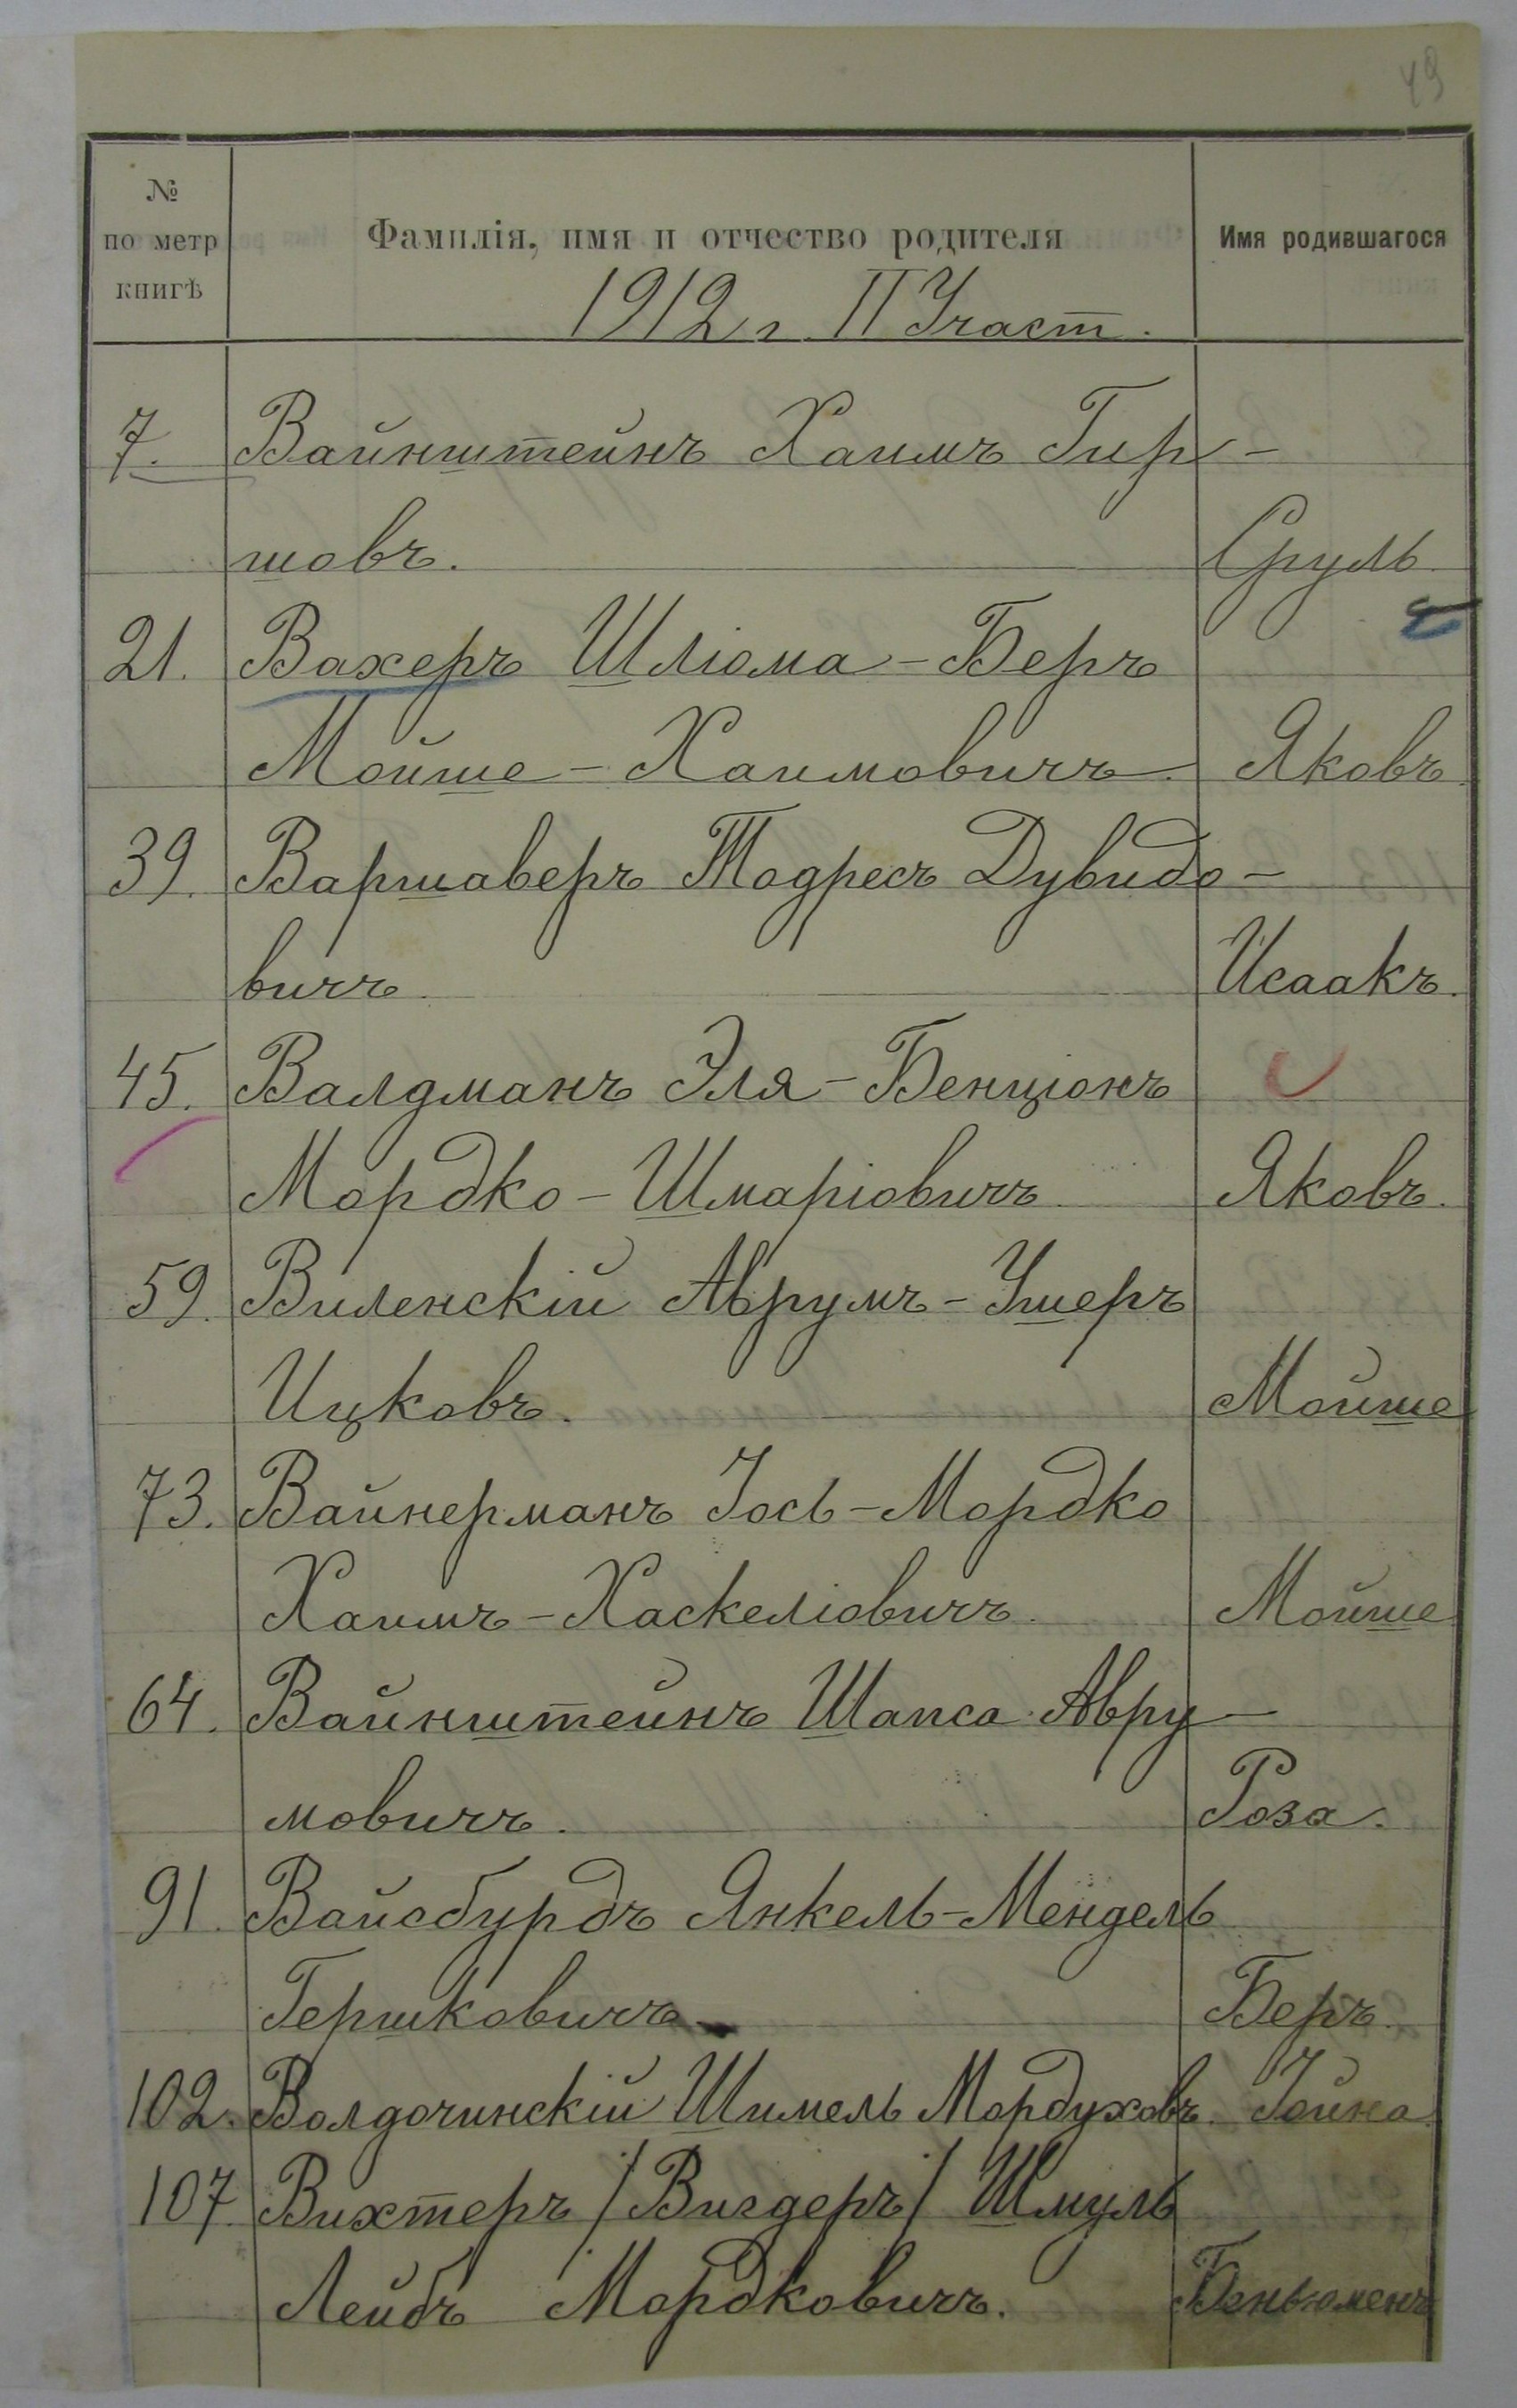 49
№
по метр
книгѣ
Фамилія, имя и отчество родителя
Имя родившагося
1912 г. II Участ.
7. Вайнштейнъ Хаимъ Гир-
шовъ. Сруль
21. Вахеръ Шліома-Беръ
Мойше-Хаимовичъ. Яковъ.
39. Варшаверъ Тодресъ Дувидо-
вичъ. Исаакъ.
45. Валдманъ Эля-Бенціонъ
Мордко-Шмаріовичъ. Яковъ.
59. Виленскій Аврумъ-Ушеръ
Ицковъ. Мойше
73. Вайнерманъ Іось-Мордко
Хаимъ-Хаскеліовичъ. Мойше
64. Вайнштейнъ Шапса Авру-
мовичъ. Роза.
91. Вайсбурдъ Янкель-Мендель
Гершковичъ Беръ.
102. Волдочинскій Шимель Мордуховъ. Іойна.
107 Вихтеръ /Вигдеръ/ Шмуль
Лейбъ Мордковичъ. Беньюменъ